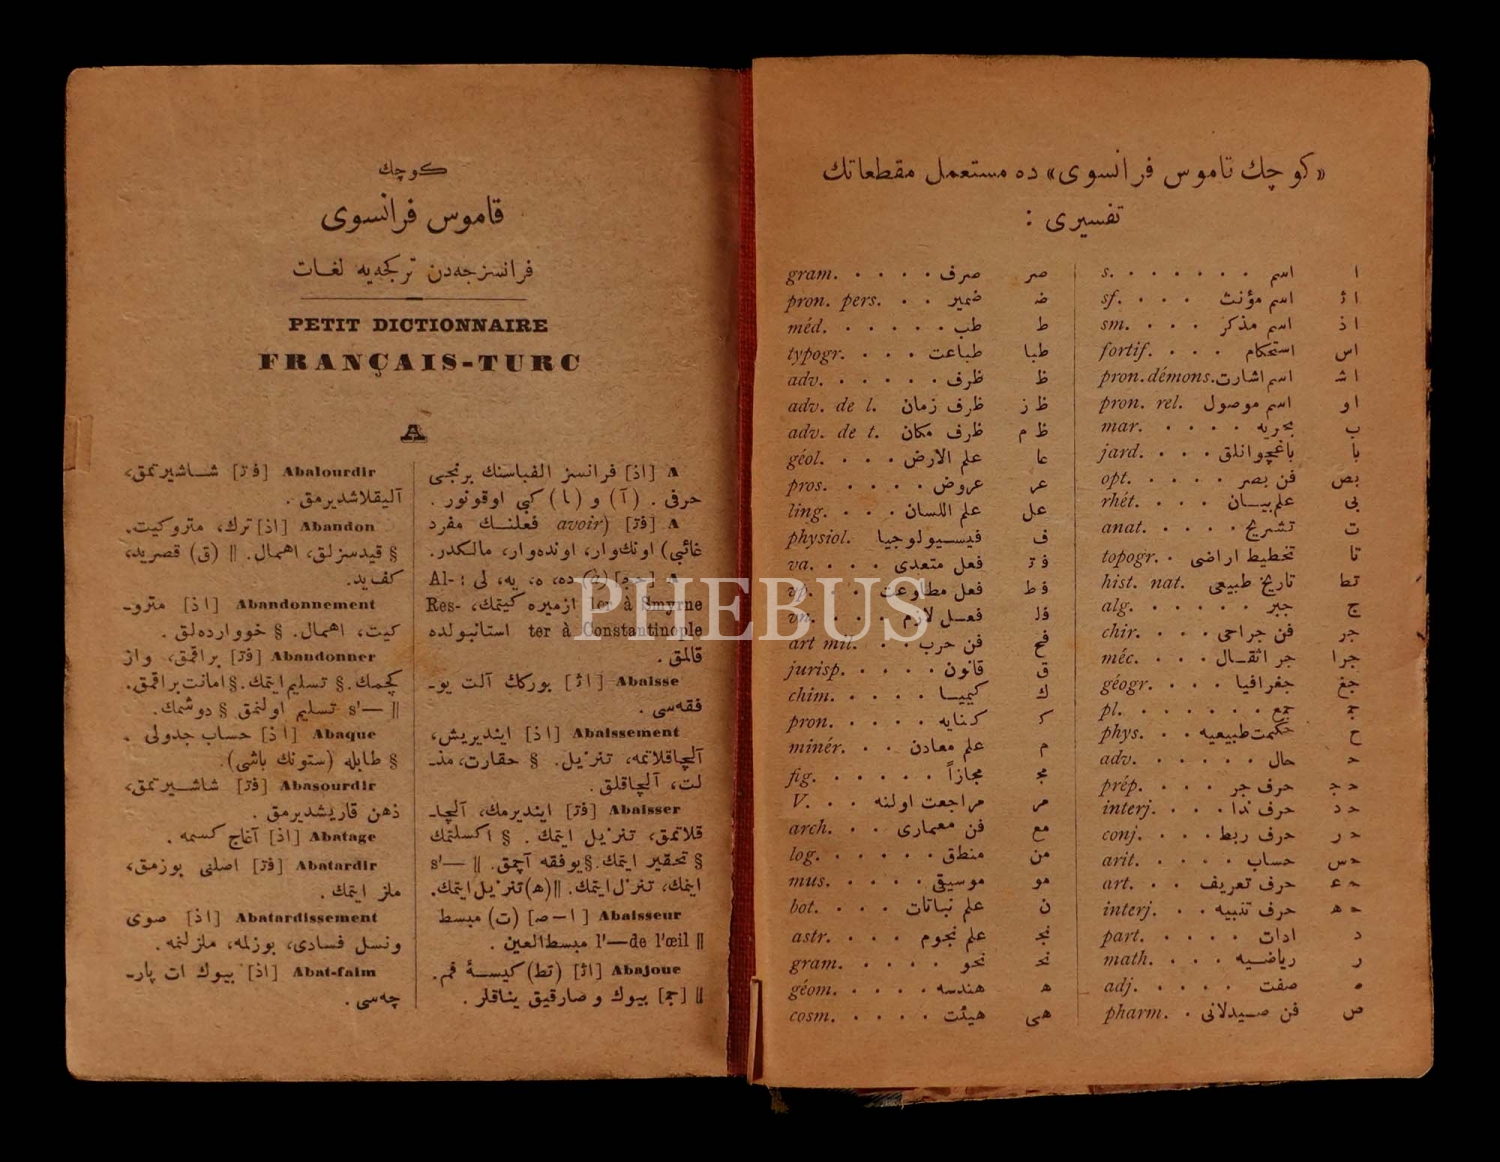 «كوچك قاموس فرانسوى» ده مستعمل مقطعاتك
تفسيرى :
ا اسم . . . . . . . s.
اث اسم مؤنث . . . sf.
اذ اسم مذكر . . . sm.
اس استحكام . . . fortif.
اشـ اسم اشارت pron.démons.
او اسم موصول pron. rel.
ب بحريه . . . . mar.
با باغچوانلق . . . jard.
بص فن بصر . . . . opt.
بى علم بيـان . . . rhét.
ت تشريح . . . . anat.
تا تخطيط اراضى . topogr.
تط تاريخ طبيعى hist. nat.
ج جبر . . . . . alg.
جر فن جراحى . . . chir.
جرا جر اثقـال . . . méc.
جغ جغرافيا . . . géogr.
جمع . . . . . . pl.
ح حكمت طبيعيه . . phys.
حال . . . . . adv.
حرف جر . . . . prép.
حرف ندا . . . interj.
حرف ربط . . . conj.
حساب . . . . arit.
حرف تعريف . . art.
حرف تنبيه . . interj.
د ادات . . . . part.
ر رياضـيه . . . math.
صفت . . . . adj.
ص فن صـيدلانى . pharm.
صر صرف . . . . gram.
ضـ ضمير . . pron. pers.
ط طب . . . . . méd.
طبا طباعت . . . typogr.
ظ ظرف . . . . . adv.
ظ ز ظرف زمان adv. de l.
ظ م ظرف مكان adv. de t.
عا علم الارض . . géol.
عر عروض . . . . pros.
عل علم اللسان . . . ling.
ف فيسـيولوجيا physiol.
فعل متعدى . . . . va.
فعل مطاوعت
فعـل لازم . . . . vn.
فح فن حرب . . art mil.
ق قانون . . . . jurisp.
ك كيميـا . . . . chim.
كـ كـنايه . . . . pron.
م علم معادن . . minér.
مجـ مجازاً . . . . . fig.
مر مراجعت اولنه . . V.
مع فن معمارى . . arch.
من منطق . . . . . log.
مو موسيقى . . . . mus.
ن علم نباتات . . . bot.
نجـ علم نجوم . . . astr.
نحـ نحو . . . . . gram.
هـ هندسه . . . . géom.
هى هيئت . . . . cosm.
كـوچك
قاموس فرانسوى
فرانسزجه‌دن تركجه‌يه لغـات
PETIT DICTIONNAIRE
FRANÇAIS-TURC
A
A [اذ] فرانسز الفباسنك برنجى
حرفى . (آ) و (ا) كبى اوقونور .
A [فتـ] (avoir فعلنـك مفرد
غائبى) اونك‌وار، اونده‌وار، مالكدر.
ده، ه، يه، لى : Al-
ler à Smyrne ازميره كيتمك، Res-
ter à Constantinople استانبولده
قالمق .
Abaisse [اث] بوركك آلت يو-
فقه‌سى .
Abaissement [اذ] اينديريش،
آلچاقلاتمه، تنزيل. § حقارت، مذ-
لت، آلچاقلق.
Abaisser [فتـ] اينديرمك، آلچا-
قلاتمق، تنزيل ايتمك . § اكسلتمك
§ تحقير ايتمك.§ يوفقه آچمق. || —'s
ايتمك، تنزل ايتمك. ||(ه) تنزيل ايتمك.
Abaisseur [ا-صـ] (ت) مبسط
|| l'—de l'œil مبسط العين .
Abajoue [اث] (تط) كيسـهٔ فم.
|| [جمـ] بيوك و صارقيق يناقلر .
Abalourdir [فتـ] شـاشيرتمق،
آليقلاشديرمق .
Abandon [اذ] ترك، متروكيت.
§ قيدسزلق، اهمال. || (ق) قصريد،
كف‌يد.
Abandonnement [اذ] مترو-
كيت، اهمـال. § خووارده‌لق .
Abandonner [فتـ] براقمق، واز
كچمك.§ تسليم ايتمك.§ امانت براقمق.
|| —'s تسليم اولنمق § دوشمك.
Abaque [اذ] حساب جدولى .
§ طابله (ستونك باشى).
Abasourdir [فتـ] شاشـيرتمق،
ذهن قاريشديرمق .
Abatage [اذ] آغاج كسمه .
Abatardir [فتـ] اصلنى بوزمق،
ملز ايتمك .
Abatardissement [اذ] صوى
ونسل فسادى، بوزلمه، ملزلنمه.
Abat-faim [اذ] بيوك ات پار-
چه‌سى .
PHEBUS